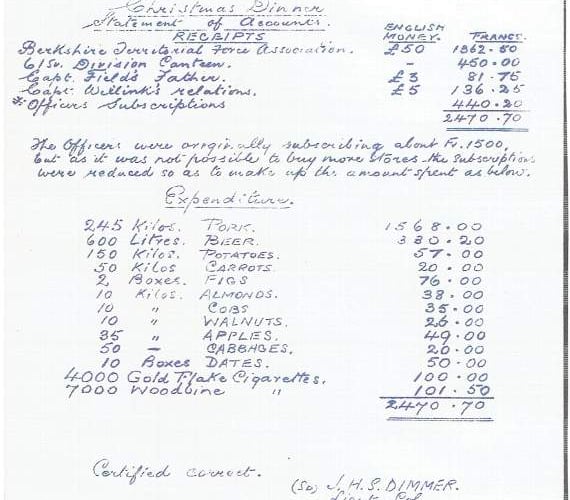 Christmas Dinner
Statement of Accounts.
RECEIPTS ENGLISH MONEY. FRANCS.
Berkshire Territorial Force Association. £50 1362.50
61st. Division Canteen. - 450.00
Capt. Field's Father. £3 81.75
Capt. Willink's relations. £5 136.25
* Officers Subscriptions 440.20
2470.70
The Officers were originally subscribing about Fr. 1500,
but as it was not possible to buy more stores the subscriptions
were reduced so as to make up the amount spent as below.
Expenditure.
245 Kilos. PORK. 1568.00
600 Litres. BEER. 330.20
150 Kilos. POTATOES. 57.00
50 Kilos CARROTS. 20.00
2 Boxes. FIGS 76.00
10 Kilos. ALMONDS. 38.00
10 " COBS 35.00
10 " WALNUTS. 26.00
35 " APPLES. 49.00
50 — CABBAGES. 20.00
10 Boxes DATES. 50.00
4000 Gold Flake Cigarettes. 100.00
7000 Woodbine " 101.50
2470.70
Certified correct.
(Sd) J.H.S. DIMMER.
Lieut. Col.